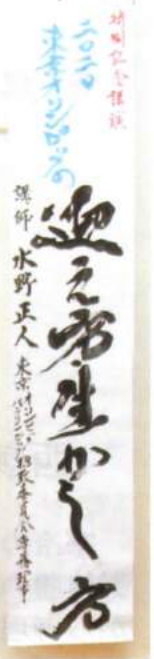 特別記念講演
二〇二〇
東京オリンピックの
迎え方・生かし方
講師 水野正人
東京オリンピック・
パラリンピック招致委員会専務理事